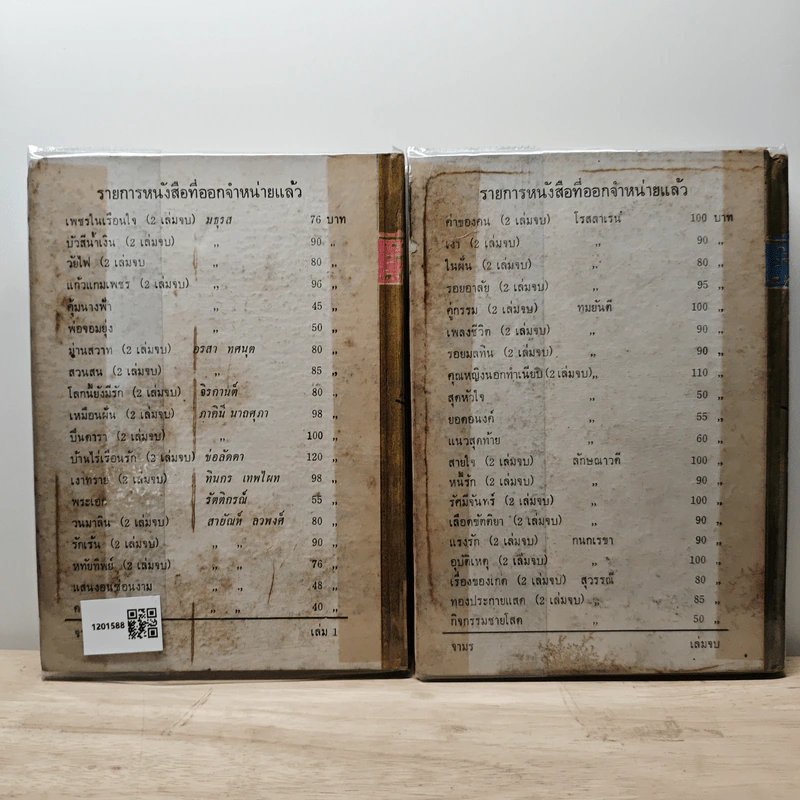 รายการหนังสือที่ออกจำหน่ายแล้ว
เพชรในเรือนใจ (2 เล่มจบ) มธุรส 76 บาท
บัวสีน้ำเงิน (2 เล่มจบ) ,, 90 ,,
วัยไฟ (2 เล่มจบ ,, 80 ,,
แก้วแกมเพชร (2 เล่มจบ) ,, 90 ,,
คุ้มนางฟ้า ,, 45 ,,
พ่อจอมยุ่ง ,, 50 ,,
ม่านสวาท (2 เล่มจบ) อรสา ทศนุต 80 ,,
สวนสน (2 เล่มจบ) ,, 85 ,,
โลกนี้ยังมีรัก (2 เล่มจบ) จิรกานต์ 80 ,,
เหมือนฝัน (2 เล่มจบ) ภาคินี นาถศุภา 98 ,,
ปิ่นดารา (2 เล่มจบ) ,, 100 ,,
บ้านไร่เรือนรัก (2 เล่มจบ) ช่อลัดดา 120 ,,
เงาทราย (2 เล่มจบ) ทินกร เทพไผท 98 ,,
พระเอก รัตติกรณ์ 55 ,,
วนมาลิน (2 เล่มจบ) สายัณห์ ลวพงศ์ 80 ,,
รักเร้น (2 เล่มจบ) ,, ,, 90 ,,
หทัยทิพย์ (2 เล่มจบ) ,, ,, 76 ,,
แสนงอนซ่อนงาม ,, ,, 48 ,,
,, ,, 40 ,,
เล่ม 1
1201588
รายการหนังสือที่ออกจำหน่ายแล้ว
ค่าของคน (2 เล่มจบ) โรสลาเรน 100 บาท
เงา (2 เล่มจบ) ,, 90 ,,
ในฝัน (2 เล่มจบ) ,, 80 ,,
รอยอาลัย (2 เล่มจบ) ,, 95 ,,
คู่กรรม (2 เล่มจบ) ทมยันตี 100 ,,
เพลงชีวิต (2 เล่มจบ) ,, 90 ,,
รอยมลทิน (2 เล่มจบ) ,, 90 ,,
คุณหญิงนอกทำเนียบ (2 เล่มจบ) ,, 110 ,,
สุดหัวใจ ,, 50 ,,
ยอดอนงค์ ,, 55 ,,
แนวสุดท้าย ,, 60 ,,
สายใจ (2 เล่มจบ) ลักษณาวดี 100 ,,
หนี้รัก (2 เล่มจบ) ,, 90 ,,
รัศมีจันทร์ (2 เล่มจบ) ,, 100 ,,
เลือดขัตติยา (2 เล่มจบ) ,, 90 ,,
แรงรัก (2 เล่มจบ) กนกเรขา 90 ,,
อุบัติเหตุ (2 เล่มจบ) ,, 100 ,,
เรื่องของเกด (2 เล่มจบ) สุวรรณี 80 ,,
ทองประกายแสด (2 เล่มจบ) ,, 85 ,,
กิจกรรมชายโสด ,, 50 ,,
จามร เล่มจบ